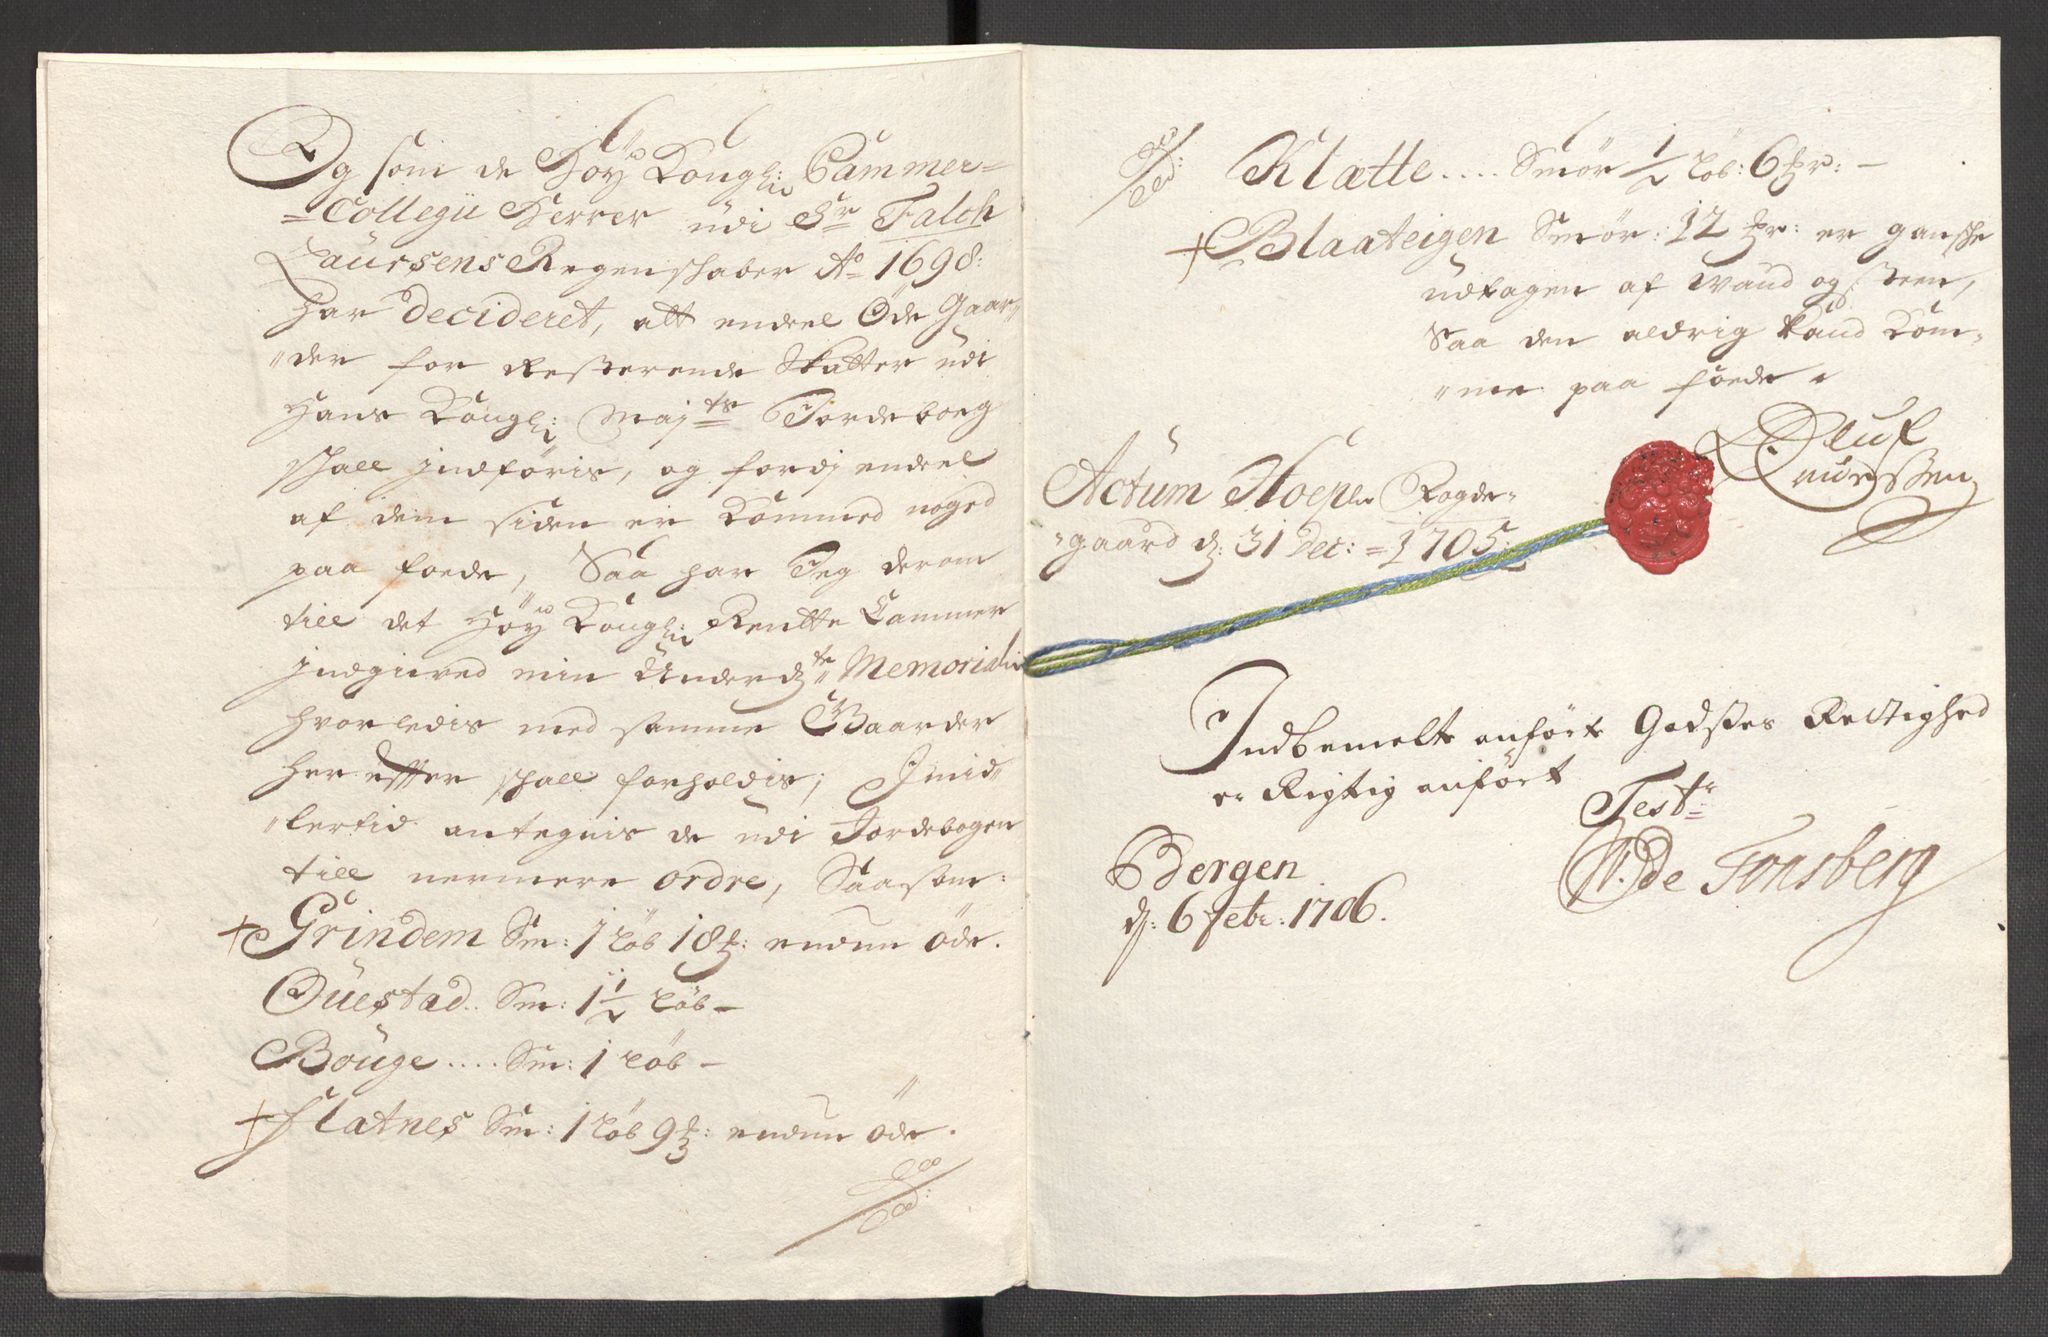 Og som de Höy Kongl: Cammer=
=Collegii Herrer udi Sr Falch
Laurssens Regenskaber Ao 1698:
har decideret, att endeel Öde Gaar„
„der for Resterende Skatter udi
Hans Kongl: Maj:ts Jordeboeg
skall jndföris, og fordj endeel
af dem siden er kommed noged
paa foede, Saa har Jeg derom
till det Höy Kongl: Rentte Cammer
jndgived min Underd:te Memorial
hvorledis med samme Gaarder
her effter skall forholdis; Imid„
„lertid antegnis de udi Jordebogen
till nermere ordre, Saasom:
+ Grindem Sm: 1 löb 18 ℔: endnu öde.
Öuestad.. Sm: 1 1/2 löb –
Bouge .... Sm: 1 löb –
+ Flatnes Sm: 1 löb 9 ℔: endnu öde.
Klatte .... Smör 1/2 löb: 6 ℔r: –
+ Blaateigen Smör: 12 ℔r: er ganske
udtagen af Wand og steen,
Saa den aldrig kand kom„
„me paa foede.
Oluf
Laurssen
Actum Hoeplu Fogde„
„gaard d: 31 Dec: = 1705:
Indbemelte anförte Godsses Rettighed
er Rigtig anfört
Test:r
W: De Tonsberg
Bergen
d: 6 febr: 1706.